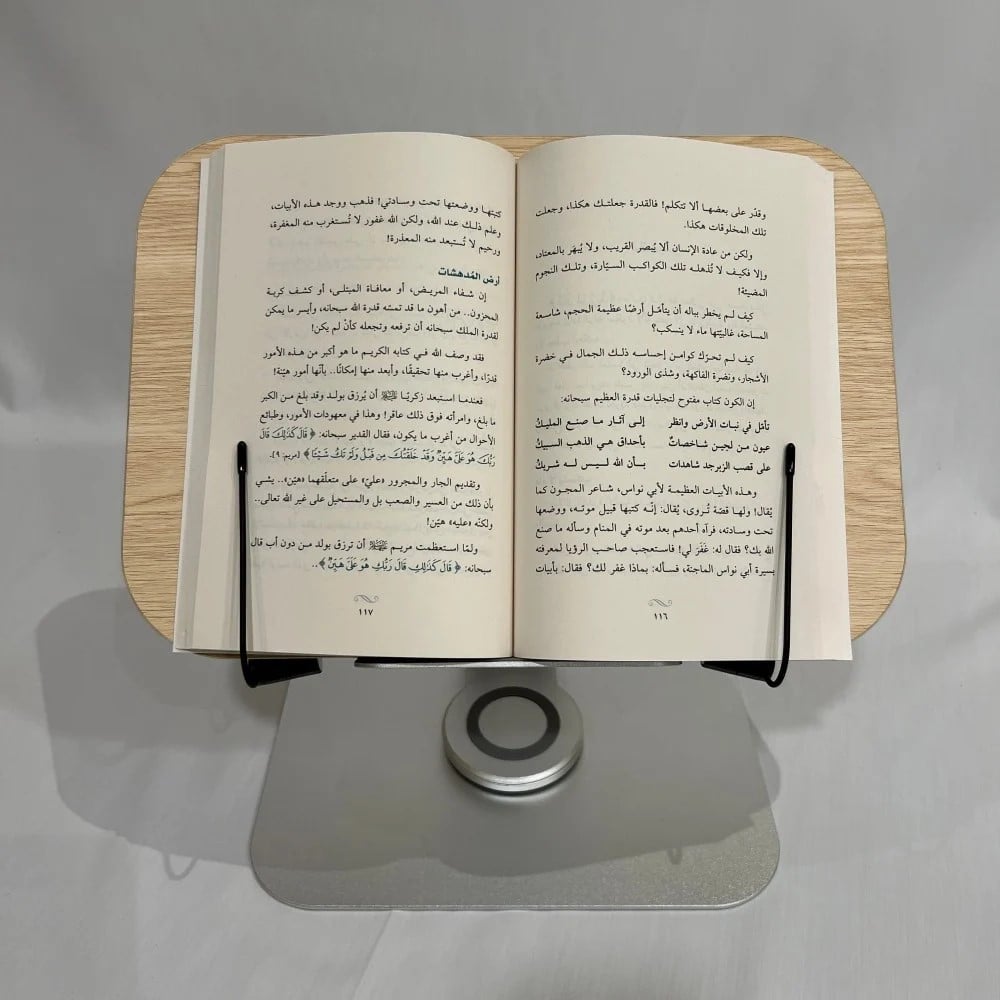 وقدّر على بعضها ألا تتكلم! فالقدرة جعلتك هكذا، وجعلت
تلك المخلوقات هكذا.
ولكن من عادة الإنسان ألا يُبصر القريب، ولا يُبهَر بالمعتاد،
وإلا فكيف لا تُذهله تلك الكواكب السيّارة، وتلك النجوم
المضيئة!
كيف لم يخطر بباله أن يتأمّل أرضًا عظيمة الحجم، شاسعة
المساحة، غالبيّتها ماء لا ينسكب؟
كيف لم تحرّك كوامن إحساسه ذلك الجمال في خضرة
الأشجار، ونضرة الفاكهة، وشذى الورود؟
إن الكون كتاب مفتوح لتجليات قدرة العظيم سبحانه:
تأمّل في نبات الأرض وانظر إلى آثار ما صنع المليكُ
عيون من لجين شاخصاتٌ بأحداق هي الذهب السبيكُ
على قصب الزبرجد شاهدات بأن الله ليس له شريكُ
وهذه الأبيات العظيمة لأبي نواس، شاعر المجون كما
يُقال! ولها قصّة تُروى، يُقال: إنّه كتبها قبيل موته، ووضعها
تحت وسادته، فرآه أحدهم بعد موته في المنام وسأله ما صنع
الله بك؟ فقال له: غَفَرَ لي! فاستعجب صاحب الرؤيا لمعرفته
بسيرة أبي نواس الماجنة، فسأله: بماذا غفر لك؟ فقال: بأبيات
١١٦
كتبتها ووضعتها تحت وسادتي! فذهب ووجد هذه الأبيات،
وعلم ذلك عند الله، ولكن الله غفور لا تُستغرب منه المغفرة،
ورحيم لا تُستبعد منه المعذرة!
أرض المُدهشات
إن شفاء المريض، أو معافاة المبتلى، أو كشف كربة
المحزون.. من أهون ما قد تمسّه قدرة الله سبحانه، وأيسر ما يمكن
لقدرة الملك سبحانه أن ترفعه وتجعله كأنْ لم يكن!
فقد وصف الله في كتابه الكريم ما هو أكبر من هذه الأمور
قدرًا، وأغرب منها تحقيقًا، وأبعد منها إمكانًا.. بأنّها أمور هيّنة!
فعندما استبعد زكريّا ﷺ أن يُرزق بولد وقد بلغ من الكبر
ما بلغ، وامرأته فوق ذلك عاقر! وهذا في معهودات الأمور، وطبائع
الأحوال من أغرب ما يكون، فقال القدير سبحانه: ﴿ قَالَ كَذَٰلِكَ قَالَ
رَبُّكَ هُوَ عَلَيَّ هَيِّنٌ وَقَدْ خَلَقْتُكَ مِن قَبْلُ وَلَمْ تَكُ شَيْئًا ﴾ [مريم: ٩].
وتقديم الجار والمجرور «عليّ» على متعلّقهما «هيّن».. يشي
بأن ذلك من العسير والصعب بل والمستحيل على غير الله تعالى..
ولكنّه «عليه» هيّن!
ولمّا استعظمت مريم أن ترزق بولد من دون أب قال
سبحانه: ﴿ قَالَ كَذَٰلِكِ قَالَ رَبُّكِ هُوَ عَلَيَّ هَيِّنٌ ﴾..
١١٧